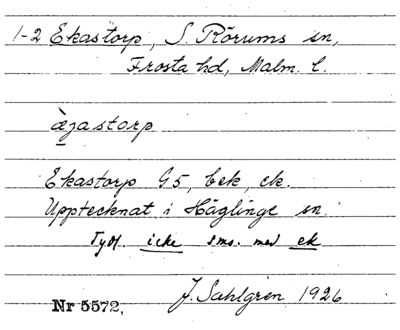 1-2 Ekastorp, S. Rörums sn,
Frosta hd, Malm. l.
æ̀gastorp
Ekastorp G5, bek, ek.
Upptecknat i Häglinge sn.
Tydl. icke sms. med ek
J. Sahlgren 1926
Nr 5572,